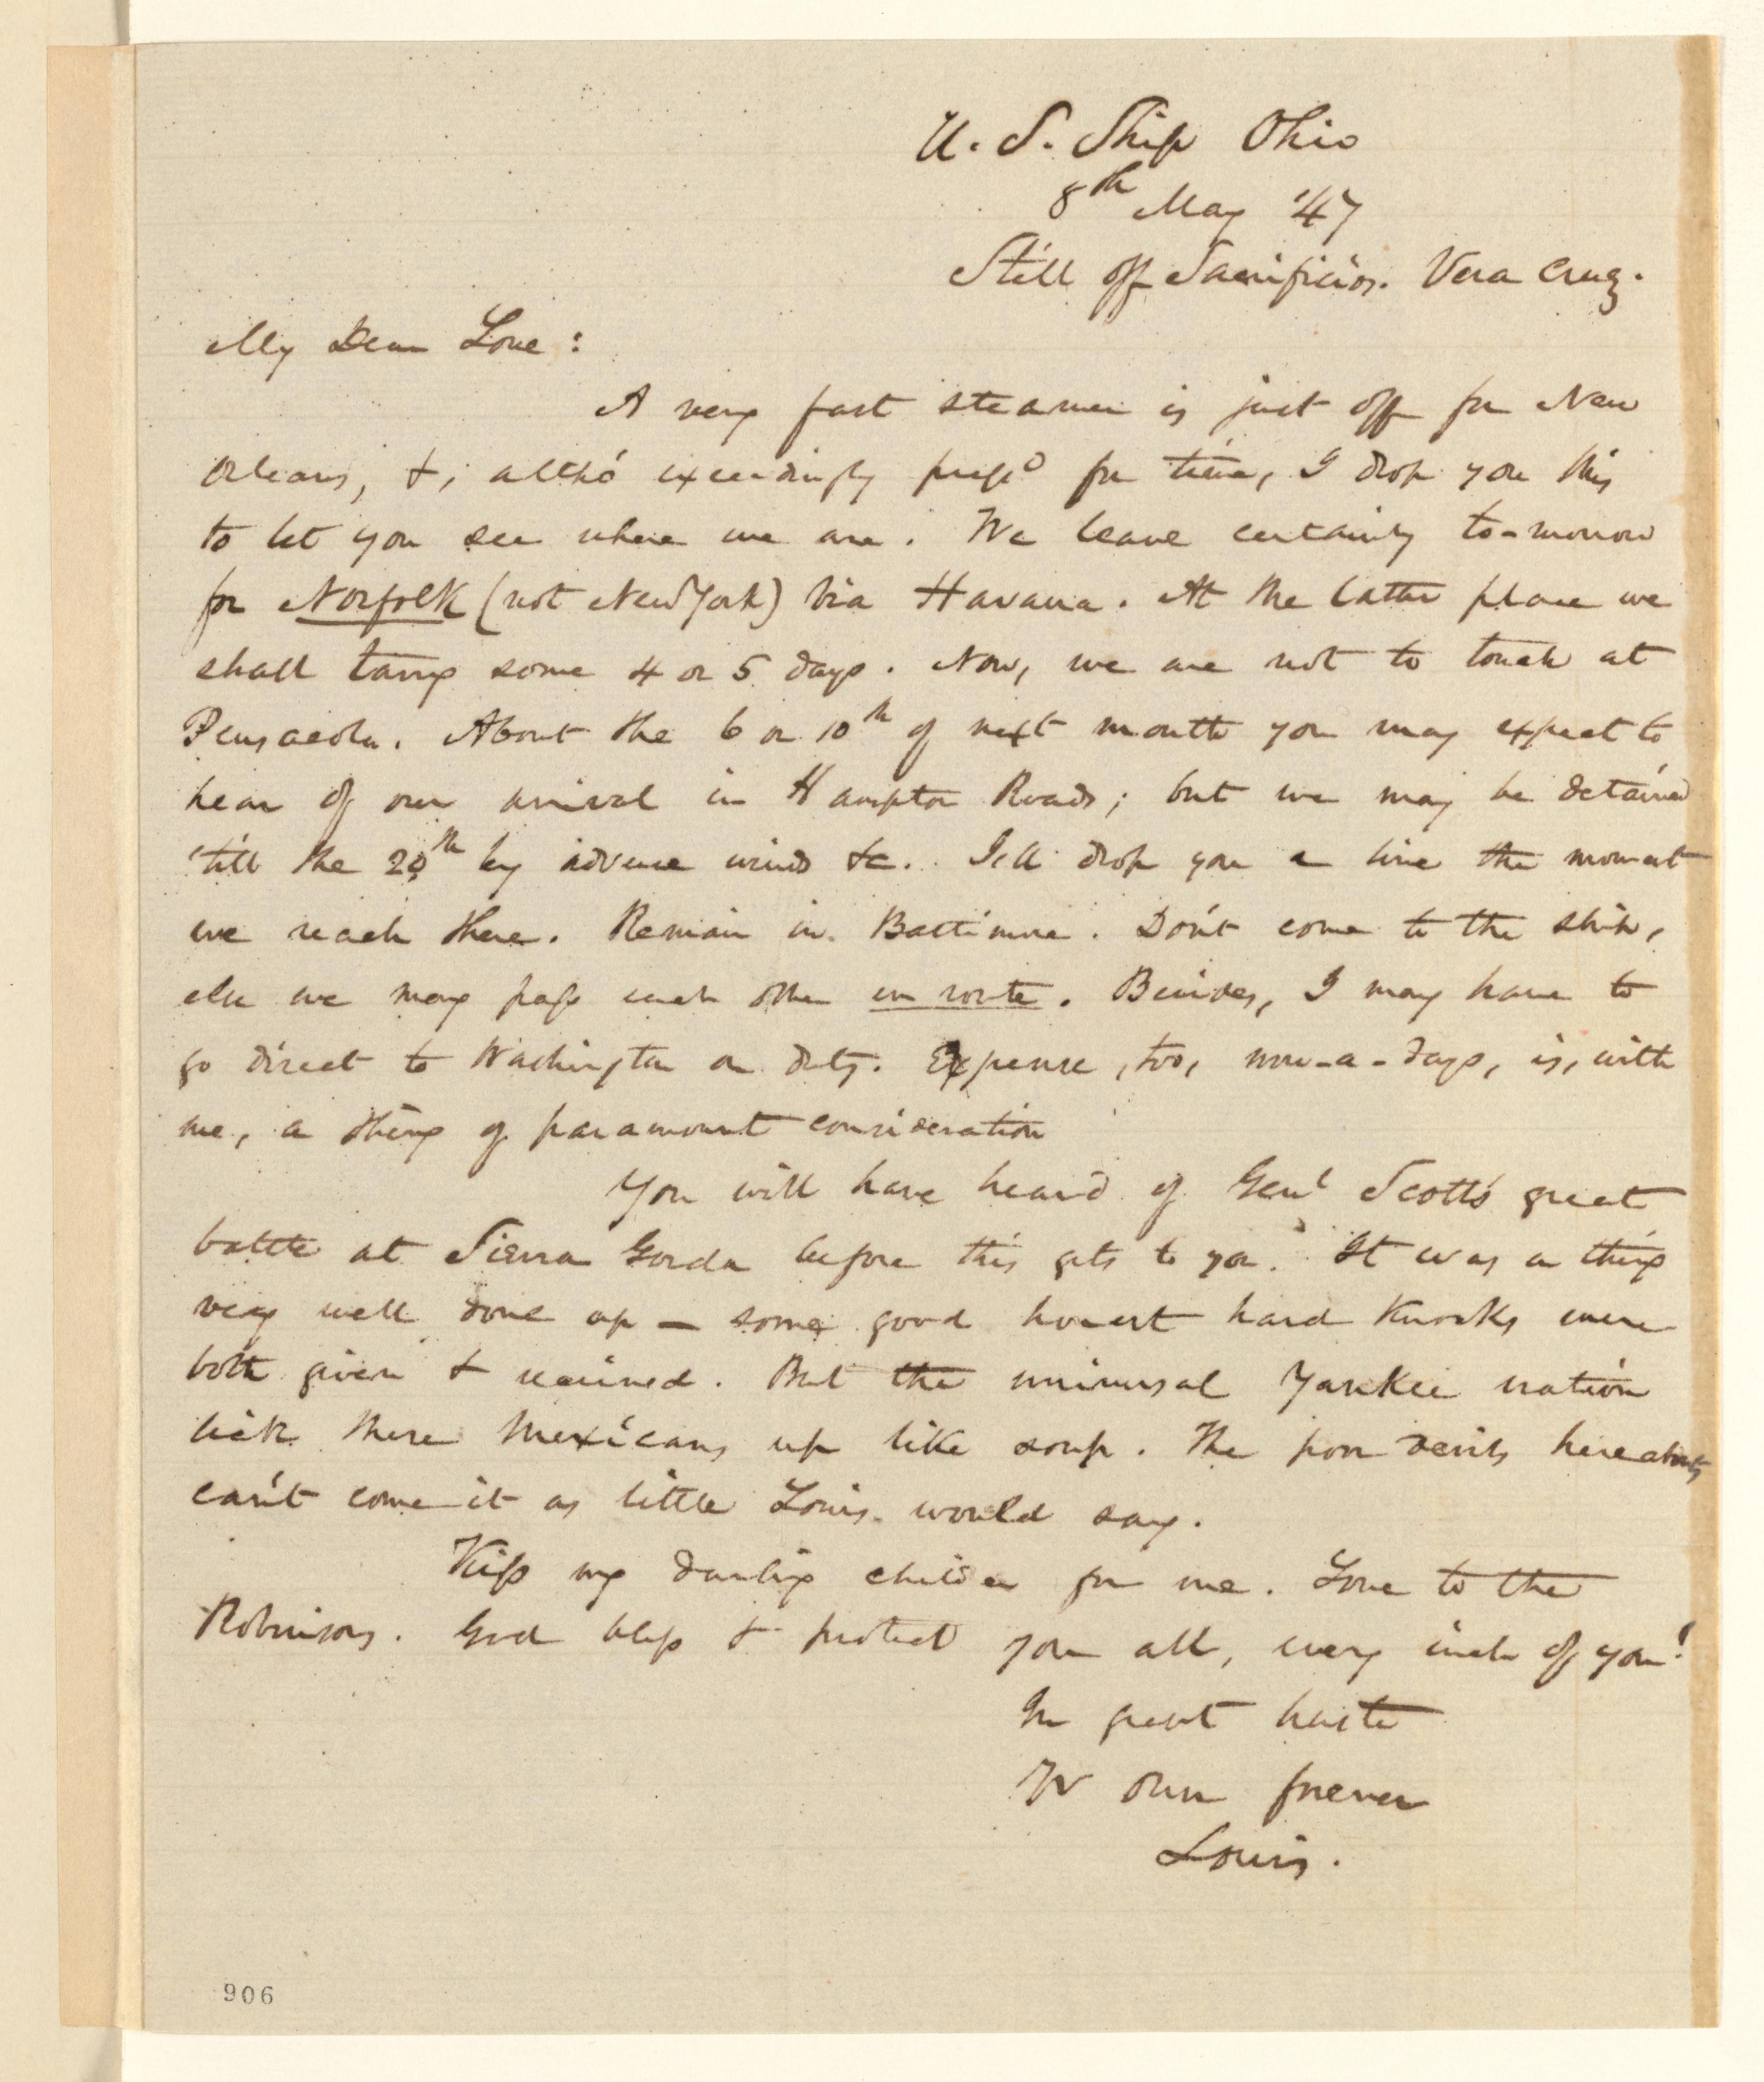 U. S. Ship Ohio
8th May '47
Still off Sacrificios. Vera Cruz.
My Dear Love:
A very fast steamer is just off for New
Orleans, &, altho' exceedingly press'd for time, I drop you this
to let you see where we are. We leave certainly to-morrow
for Norfolk (not New York) via Havana. At the latter place we
shall tarry some 4 or 5 days. Now, we are not to touch at
Pensacola. About the 6 or 10th of next month you may expect to
hear of our arrival in Hampton Roads; but we may be detained
'till the 20th by adverse winds &c. I'll drop you a line the moment
we reach there. Remain in Baltimore. Don't come to the ship,
else we may pass each other en route. Besides, I may have to
go direct to Washington on duty. Expense, too, now-a-days, is, with
me, a thing of paramount consideration
You will have heard of Genl Scott's great
battle at Sierra Gorda before this gets to you. It was a thing
very well done up — some good honest hard knocks were
both given & received. But the universal Yankee nation
lick these Mexicans up like soup. The poor devils hereabouts
can't come it as little Louis would say.
Kiss my darling children for me. Love to the
Robinsons. God bless & protect you all, every inch of you!
In great haste
Yr own forever
Louis.
906